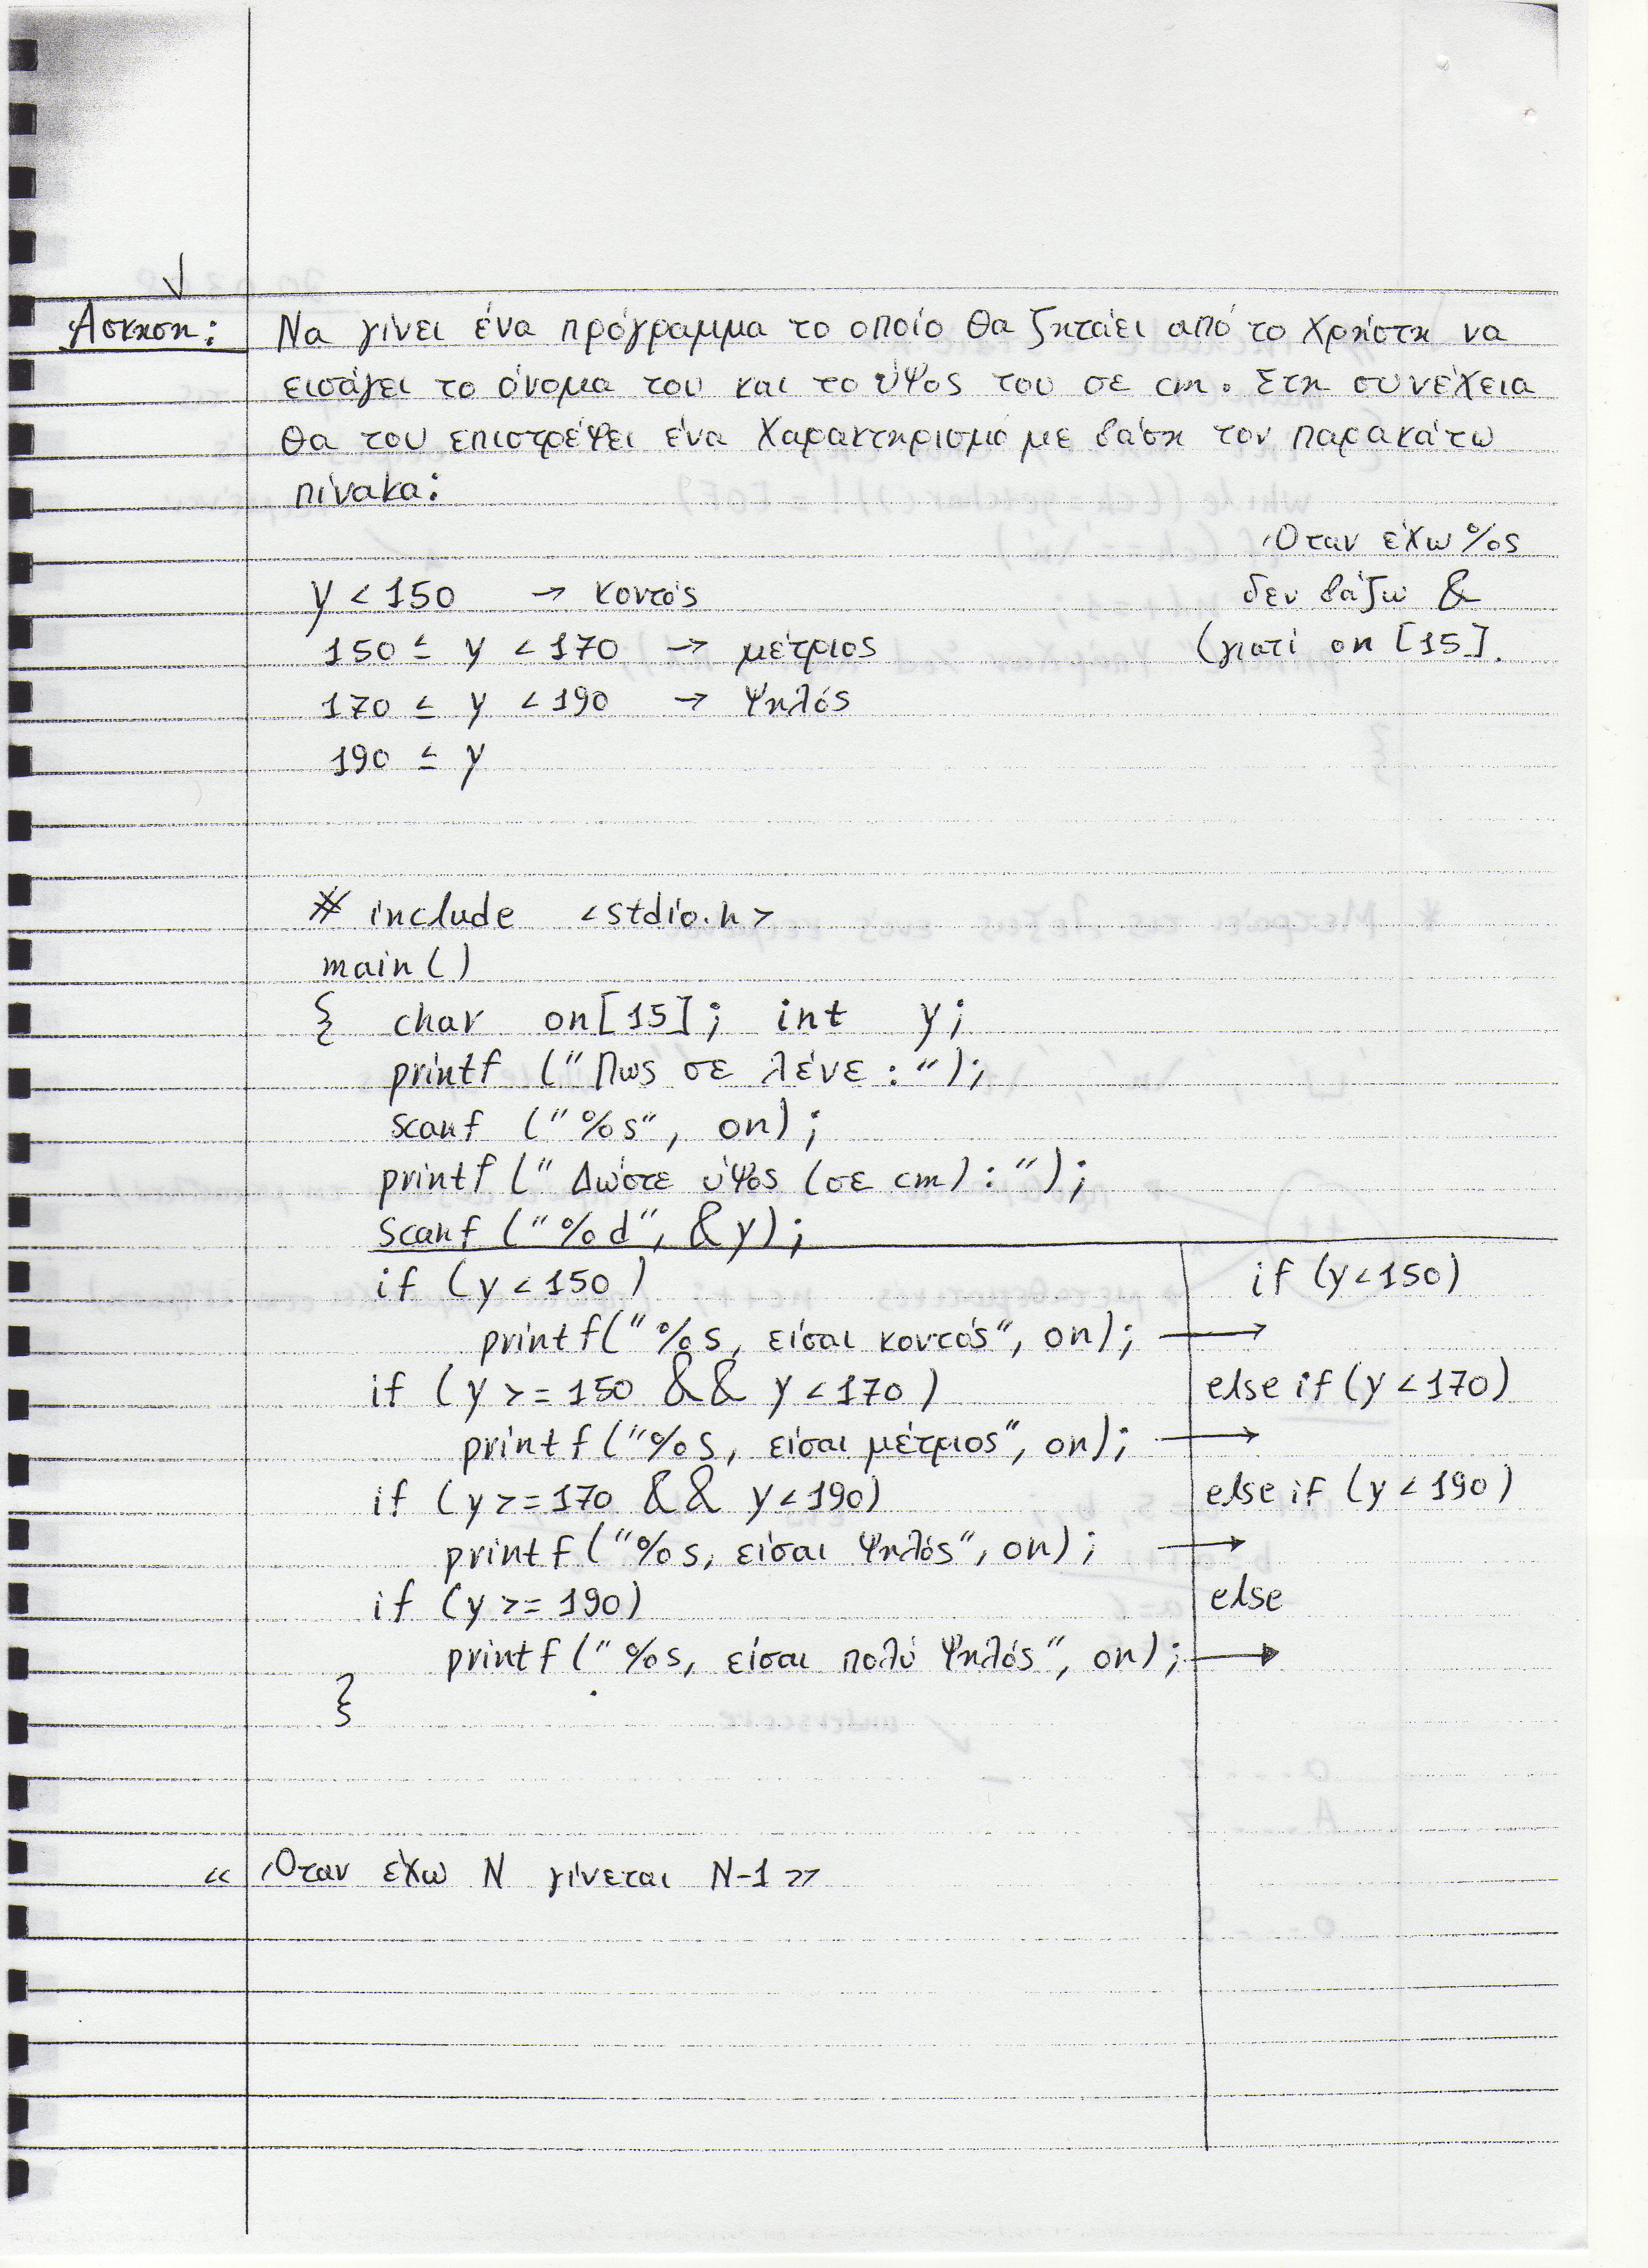 Άσκηση: Να γίνει ένα πρόγραμμα το οποίο θα ζητάει από το χρήστη να
εισάγει το όνομα του και το ύψος του σε cm. Στη συνέχεια
θα του επιστρέψει ένα χαρακτηρισμό με βάση τον παρακάτω
πίνακα:
Όταν έχω %s
δεν βάζω &
(γιατί on [15].
y < 150 → κοντός
150 ≤ y < 170 → μέτριος
170 ≤ y < 190 → ψηλός
190 ≤ y
# include <stdio.h>
main()
{ char on[15]; int y;
printf ("Πως σε λένε :");
scanf ("%s", on);
printf (" Δώστε ύψος (σε cm) :");
scanf ("%d", &y);
if (y < 150)
printf("%s, είσαι κοντός", on);
if (y >= 150 && y < 170)
printf("%s, είσαι μέτριος", on);
if (y >= 170 && y < 190)
printf("%s, είσαι ψηλός", on);
if (y >= 190)
printf (" %s, είσαι πολύ ψηλός", on);
}
if (y < 150)
→
else if (y < 170)
→
else if (y < 190)
→
else
→
« Όταν έχω N γίνεται N-1 »